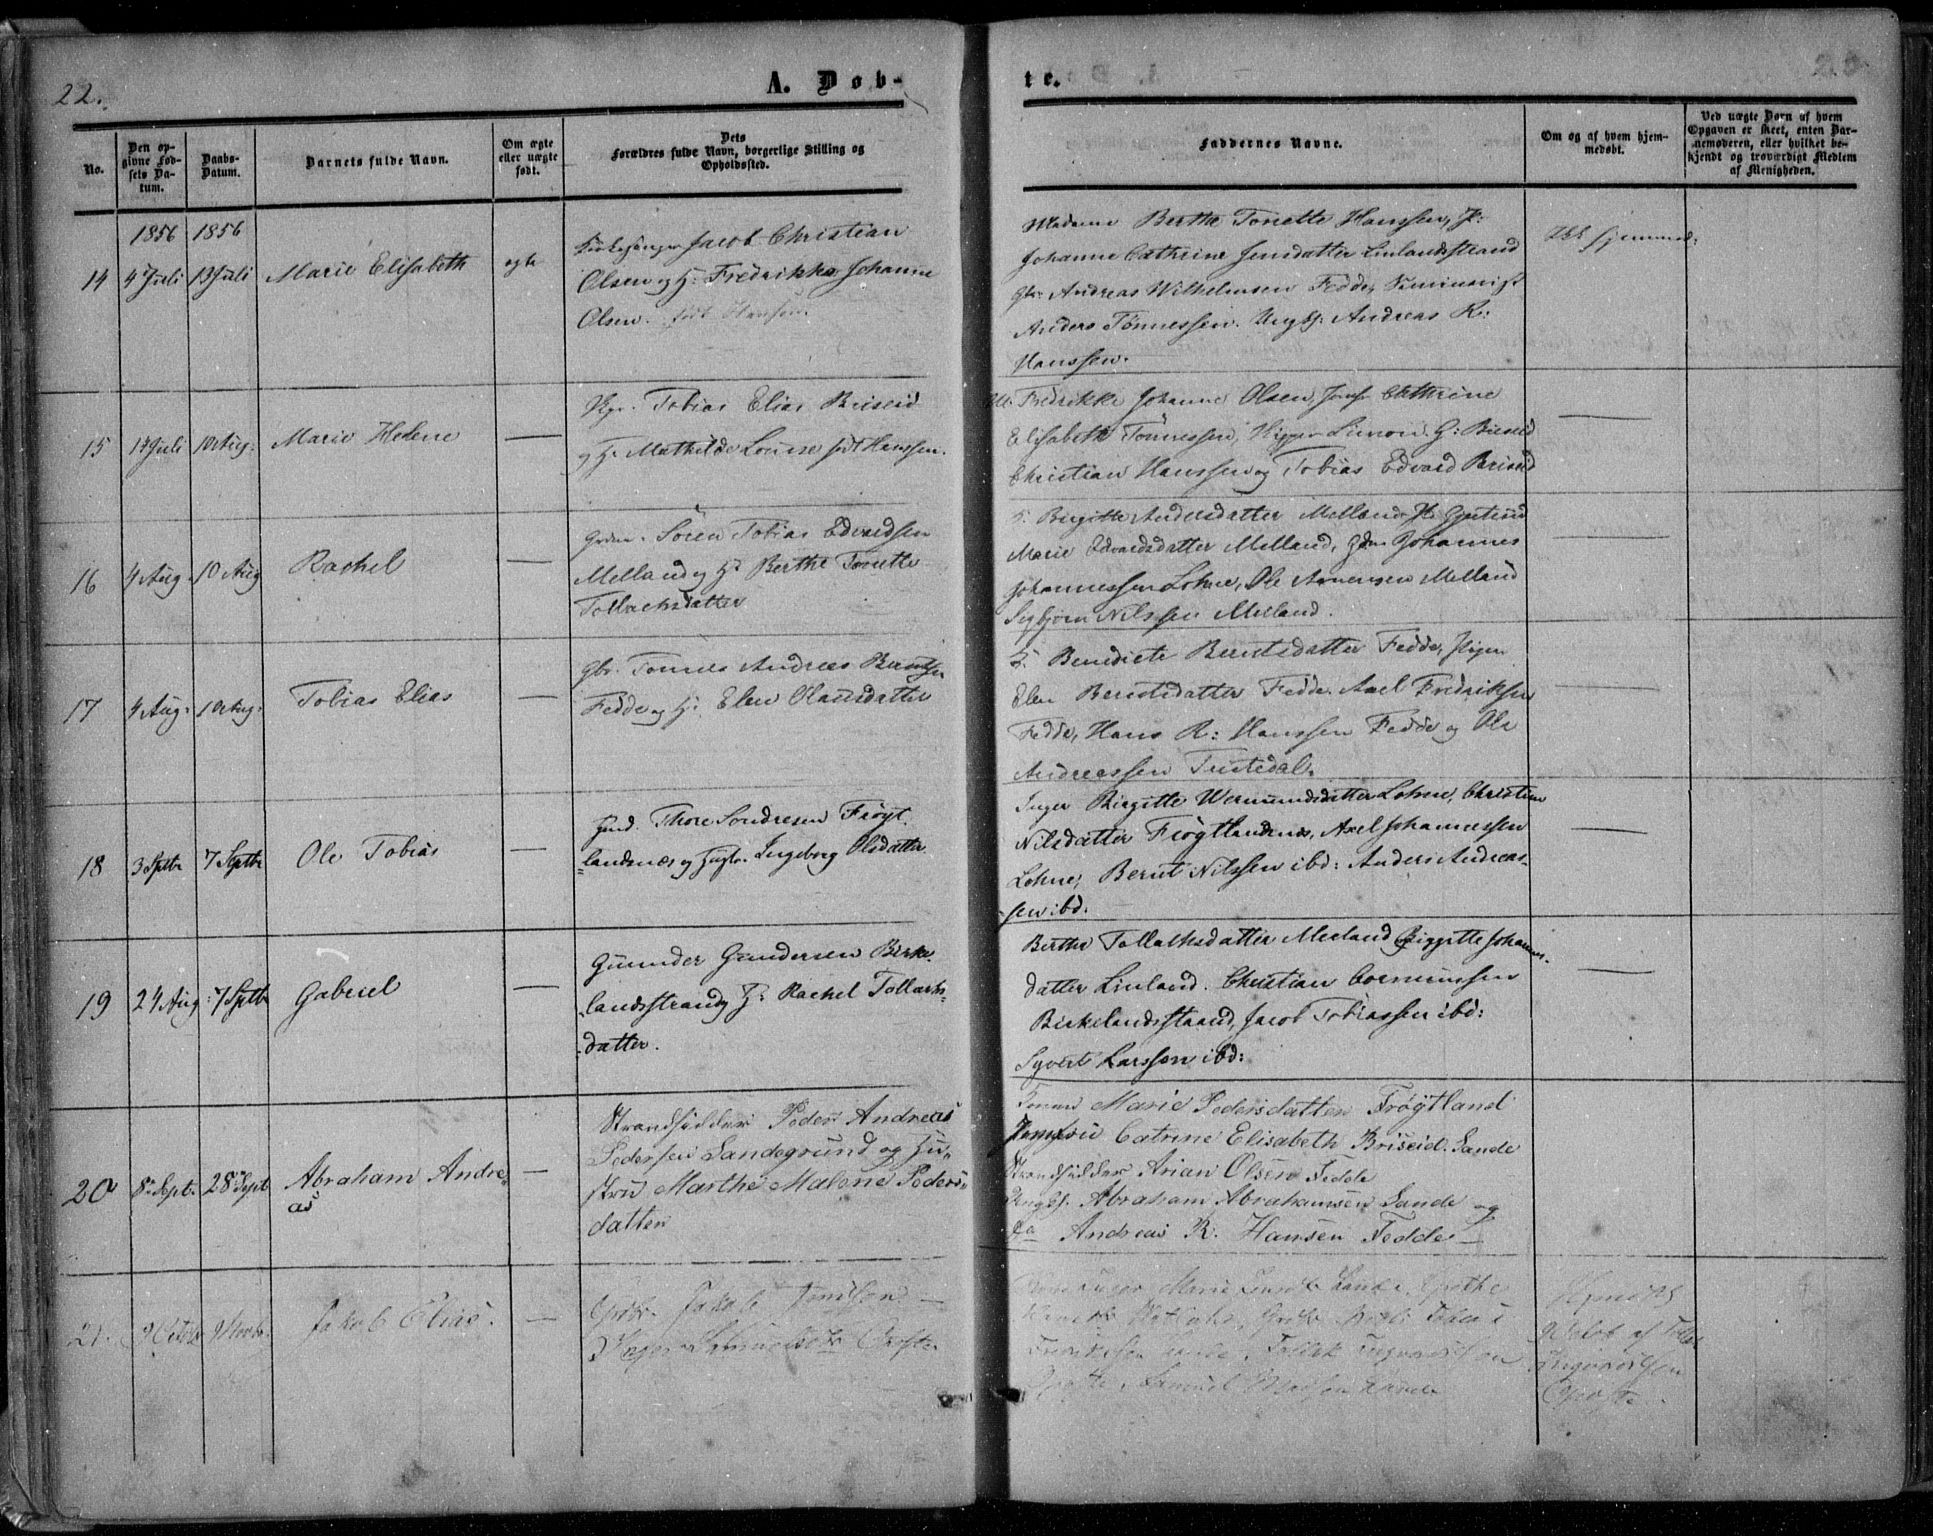 22.
A. Døb-
te.
No.
Den op-
givne Fød-
sels Da-
tum.
Daabs-
Datum.
Barnets fulde Navn.
Om ægte
eller uægte
født.
Dets
Forældres fulde Navn, borgerlige Stilling og
Opholdssted.
Faddernes Navne.
Om og af hvem hjem-
medøbt.
Ved uægte Børn af hvem
Opgaven er skeet, enten Bar-
nemoderen, eller hvilket be-
kjendt og troværdigt Medlem
af Menigheden.
1856 1856
14 4 Juli 13 Juli Marie Elisabeth ægte
Kirkesanger Jacob Christian
Olsen og H: Fredrikke Johanne
Olsen. født Hansen.
Madame Berthe Tonette Hanssen, P:
Johanne Cathrine Jensdatter Linlandsstrand
Gbr. Andreas Wilhelmsen Fedde, Seminarist
Anders Tønnessen. Ungk. Andreas R:
Hanssen.
Ikke hjemmed:
15 14 Juli 10 Aug: Marie Helene —
Kpr. Tobias Elias Briseid
og H: Mathilde Louise født Hanssen.
M. Fredrikke Johanne Olsen, Jomf. Cathrine
Elisabeth Tønnessen, Skipper Simon G: Briseid
Christian Hanssen og Tobias Edvard Briseid
—
16 4 Aug 10 Aug Rachel —
Grdm. Søren Tobias Edvardsen
Melland og H: Berthe Tonette
Tollachsdatter
K. Birgitte Andersdatter Melland, P: Gjertrud
Marie Edvardsdatter Melland, Gdm Johannes
Johannessen Lohne, Ole Arnensen Melland
Sigbjørn Nilssen Meeland.
—
17 4 Aug: 10 Aug: Tobias Elias —
Gbr. Tønnes Andreas Berntsen
Fedde og H: Elen Olausdatter
K. Benedicte Berntsdatter Fedde, Pigen
Elen Berntsdatter Fedde. Axel Fredriksen
Fedde, Hans R: Hanssen Fedde og Ole
Andreassen Trætedal.
—
18 3 Septbr 7 Septbr Ole Tobias —
Gmd. Thore Sondresen Frøyt-
landsnæs og Hustr. Ingeborg Olsdatter
Inger Birgitte Wermundsdatter Lohne, Christine
Nilsdatter Frøytlandsnæs, Axel Johannessen
Lohne, Bernt Nilssen ibd: Anders Andreas-
sen ibd.
—
19 24 Aug: 7 Septbr Gabriel —
Gunder Gundersen Birke-
landsstrand og H: Rachel Tollachs-
datter.
Berthe Tollachsdatter Meeland, Birgitte Johannes-
datter Linland. Christian Gormunsen
Birkelandsstrand, Jacob Tobiassen ibd:
Syvert Larssen ibd:
—
20 8 Septr. 28 Septr Abraham Andre-
as —
Strandsidder Peder Andreas
Pedersen Sandegrund og Hu-
stru Marthe Malene Peders-
datter
Marie Pedersdatter Frøytland
Jomfru Catrine Elisabeth Briseid. Sande
Strandsidder Arian Olsen Fedde
Ungk. Abraham Abrahamsen Sande og
do Andreas R. Hansen Fedde
21. 9 Octbr 9 Novbr. Jakob Elias. —
Jakob
Inger
Marie
Samuel
af